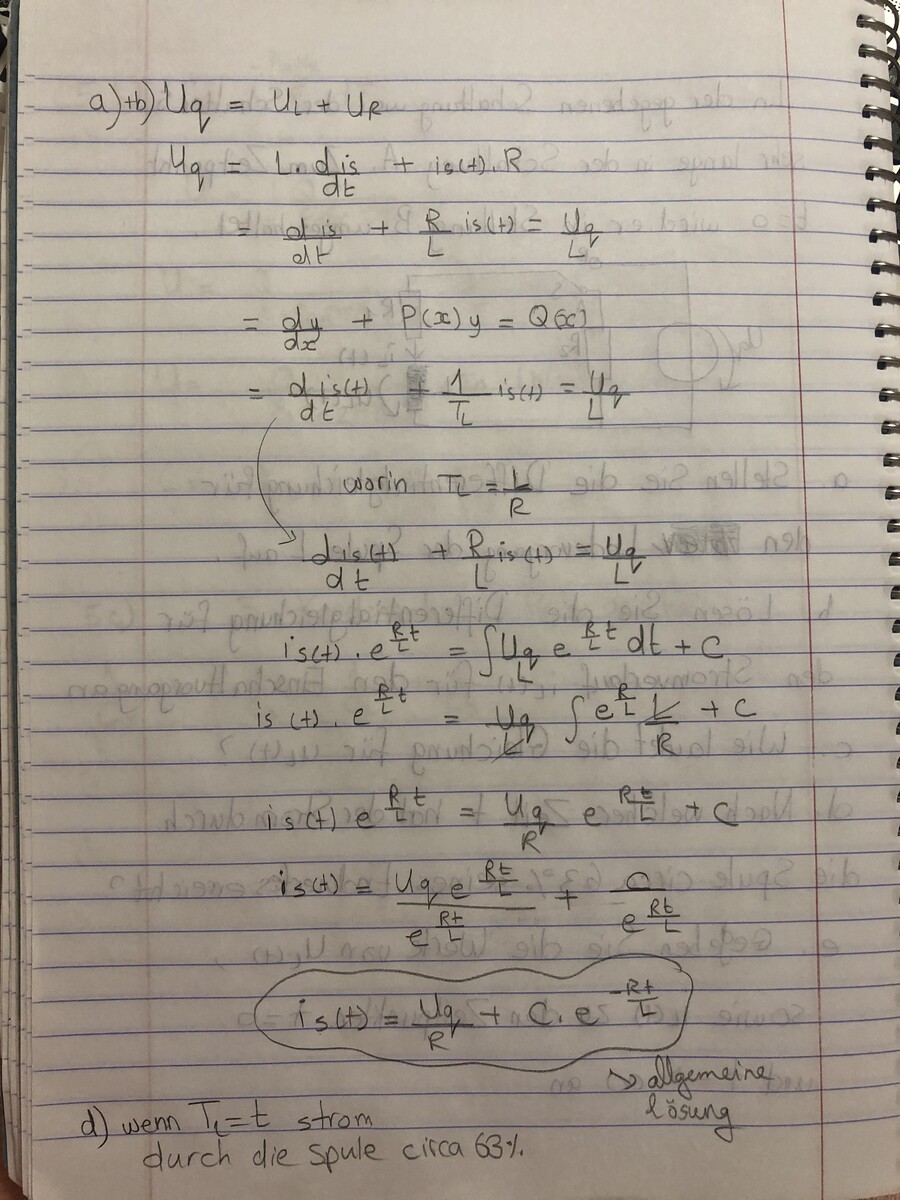 a)+b) Uq = UL + UR
Uq = L. dis/dt + is(t).R
= dis/dt + R/L is(t) = Uq/L
= dy/dx + P(x)y = Q(x)
= dis(t)/dt + 1/TL is(t) = Uq/L
worin TL = L/R
dis(t)/dt + R/L is(t) = Uq/L
is(t) . e^(R/L t) = ∫ Uq/L e^(R/L t) dt + C
is(t) . e^(R/L t) = Uq/L ∫ e^(R/L) L/R + C
is(t) e^(R/L t) = Uq/R e^(Rt/L) + C
is(t) = Uq e^(Rt/L) / e^(Rt/L) + C / e^(Rt/L)
is(t) = Uq/R + C. e^(-Rt/L)
↘ allgemeine
lösung
d) wenn TL = t strom
durch die spule circa 63%.